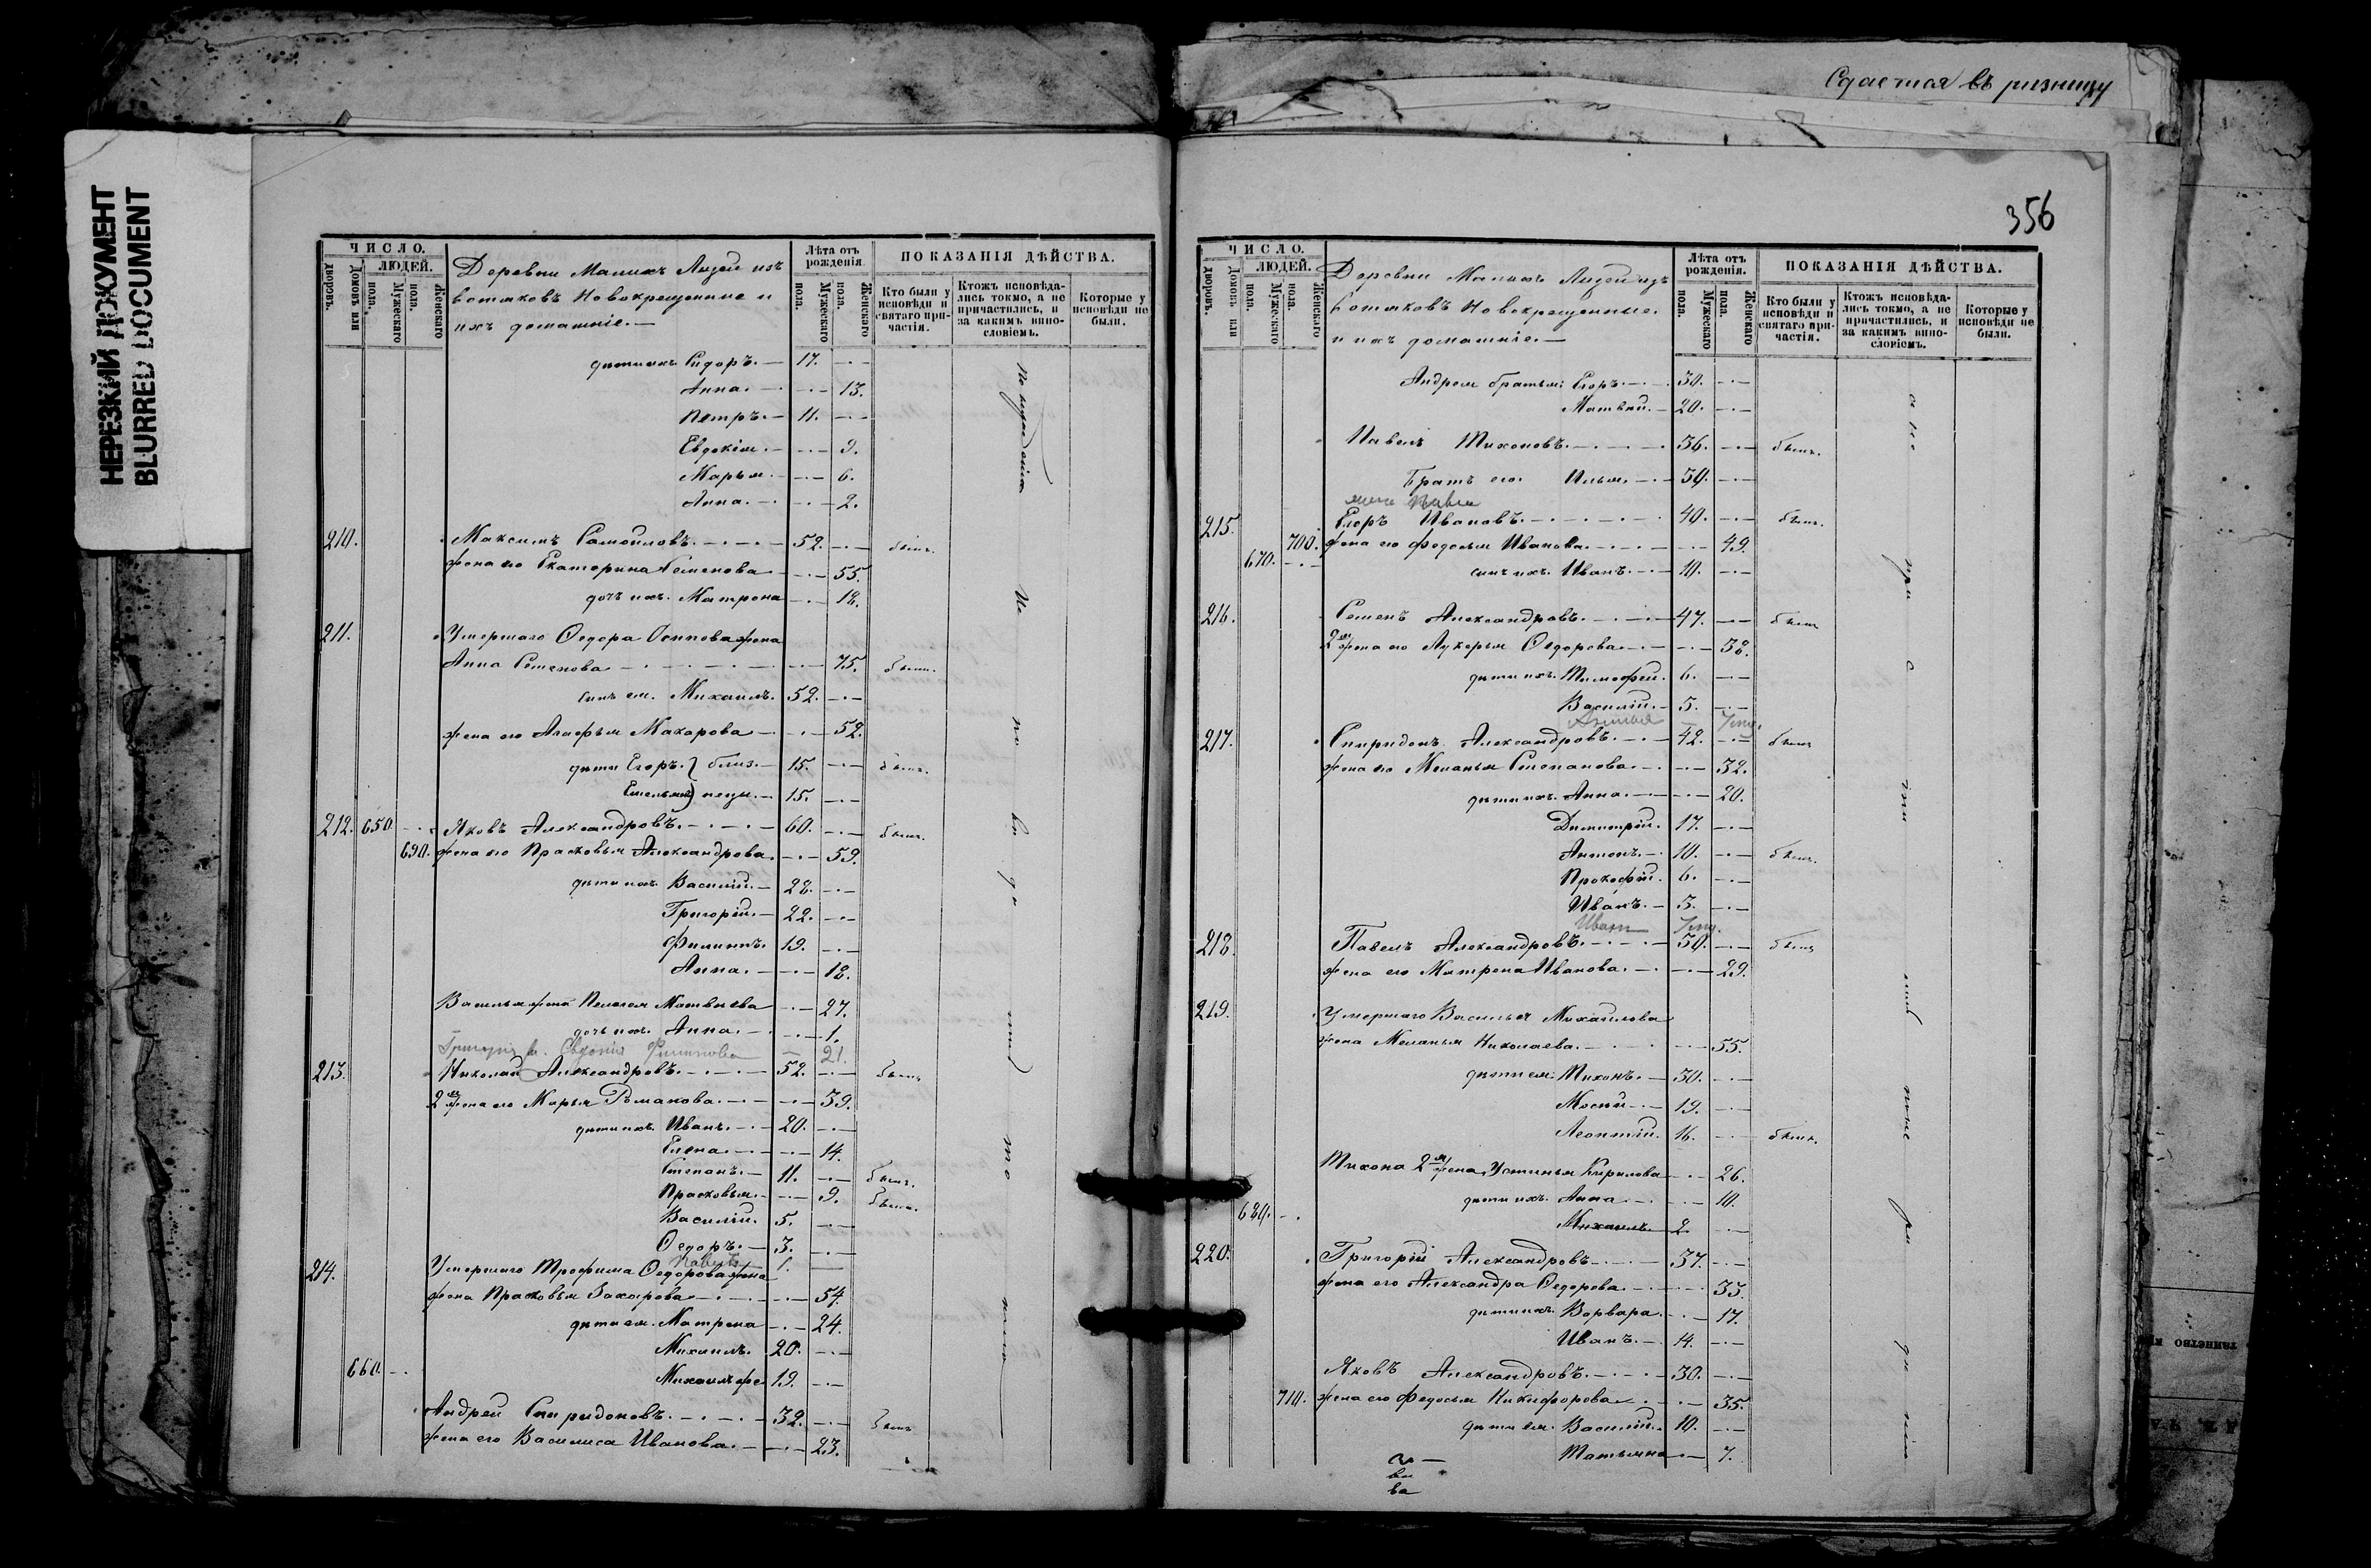 Сдается въ ризницу
НЕРЕЗКИЙ ДОКУМЕНТ
BLURRED DOCUMENT
ЧИСЛО.
ЛЮДЕЙ.
Домовъ или дворовъ.
Мужескаго пола.
Женскаго пола.
Деревни Малыхъ Лызей изъ
вотяковъ Новокрещенные и
ихъ домашніе.
Лѣта отъ рожденія.
Мужескаго пола.
Женскаго пола.
ПОКАЗАНІЯ ДѢЙСТВА.
Кто были у исповѣди и святаго причастія.
Ктожъ исповѣдались токмо, а не причастились, и за какимъ винословіемъ.
Которые у исповѣди не были.
дѣти ихъ Сидоръ. 17.
Анна. 13.
Петръ. 11.
Евдокія. 9.
Марья. 6.
Анна. 2.
210. Максимъ Самойловъ. 52. бѣлъ.
жена его Екатерина Семенова 55.
дочь ихъ Матрена 18.
211. Умершаго Ѳедора Осипова жена
Анна Семенова 75.
сынъ ея Михаилъ. 52.
жена его Агафья Макарова 52.
дѣти Егоръ. } близ. 15.
Емельянъ } нецы. 15.
212. 650. Яковъ Александровъ. 60.
690. жена его Прасковья Александрова. 59.
дѣти ихъ Василій. 28.
Григорій. 22.
Филиппъ. 19.
Анна. 18.
Василья жена Пелагея Матвѣева 27.
дочь ихъ Анна. 1.
Григорія ж. Евдокія Филипова 21.
213. Николай Александровъ. 52.
2я жена его Марья Романова. 39.
дѣти ихъ Иванъ. 20.
Елена. 14.
Степанъ. 11.
Прасковья. 9.
Василій. 5.
Ѳедоръ. 3.
Павелъ 1.
214. Умершаго Трофима Ѳедорова жена
жена Прасковья Захарова 54.
дѣти ея Матрена 24.
Михаилъ. 20.
660. Михаилъ же 19.
Андрей Спиридоновъ. 32.
жена его Василиса Иванова. 23.
356
ЧИСЛО.
ЛЮДЕЙ.
Домовъ или дворовъ.
Мужескаго пола.
Женскаго пола.
Деревни Малыхъ Лызей изъ
вотяковъ Новокрещенные
и ихъ домашніе.
Лѣта отъ рожденія.
Мужескаго пола.
Женскаго пола.
ПОКАЗАНІЯ ДѢЙСТВА.
Кто были у исповѣди и святаго причастія.
Ктожъ исповѣдались токмо, а не причастились, и за какимъ винословіемъ.
Которые у исповѣди не были.
Андрея братья: Егоръ. 30.
Матвѣй. 20.
Павелъ Тихоновъ. 56.
Братъ его Илья. 50.
215. Егоръ Ивановъ. 40.
700. жена его Федосья Иванова. 49.
670. сынъ ихъ Иванъ. 10.
216. Семенъ Александровъ. 47.
2я жена его Лукерья Ѳедорова. 38.
дѣти ихъ Тимофей. 6.
Василій. 5.
217. Спиридонъ Александровъ. 42.
жена его Меланья Степанова. 32.
дѣти ихъ Анна. 20.
Димитрій. 17.
Антонъ. 10.
Прокофій. 6.
Иванъ. 3.
Иванъ
218. Павелъ Александровъ. 30.
жена его Матрена Иванова. 29.
219. Умершаго Василья Михайлова
жена Меланья Николаева. 55.
дѣти ея: Тихонъ. 30.
Мосей. 19.
Леонтій. 16.
Тихона 2я жена Устинья Кирилова 26.
дѣти ихъ Анна. 10.
680. Михаилъ. 2.
220. Григорій Александровъ. 37.
жена его Александра Ѳедорова. 33.
дѣти ихъ Варвара. 17.
Иванъ. 14.
Яковъ Александровъ. 30.
710. жена его Федосья Никифорова 35.
дѣти ея Василій. 10.
Татьяна 7.